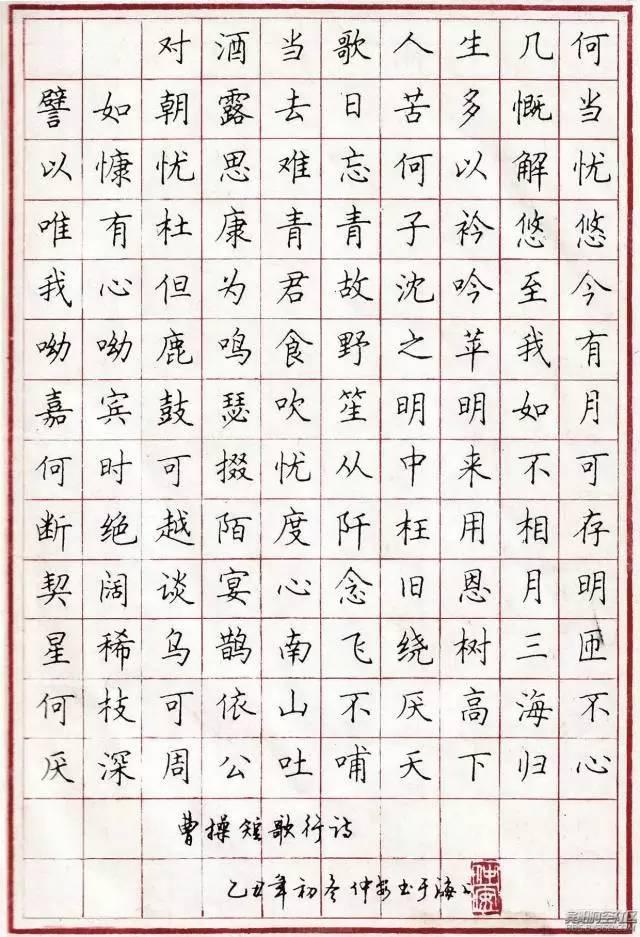 对酒当歌人生几何
譬如朝露去日苦多慨当
以慷忧思难忘何以解忧
唯有杜康青青子衿悠悠
我心但为君故沈吟至今
呦呦鹿鸣食野之苹我有
嘉宾鼓瑟吹笙明明如月
何时可掇忧从中来不可
断绝越陌度阡枉用相存
契阔谈宴心念旧恩月明
星稀乌鹊南飞绕树三匝
何枝可依山不厌高海不
厌深周公吐哺天下归心
曹操短歌行诗
乙丑年初冬仲书于海上